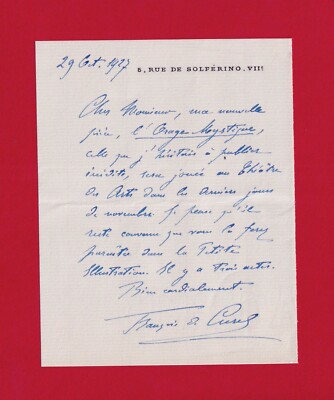 29 Oct. 1927
5, RUE DE SOLFÉRINO. VIIᵉ
Cher Monsieur, ma nouvelle
pièce, l'Orage Mystique,
celle que j'hésitais à publier
inédite, sera jouée au Théâtre
des Arts dans les derniers jours
de novembre. Je pense qu'il
reste convenu que vous la ferez
paraître dans la Petite
Illustration. Il y a trois actes.
Bien cordialement.
François de Curel